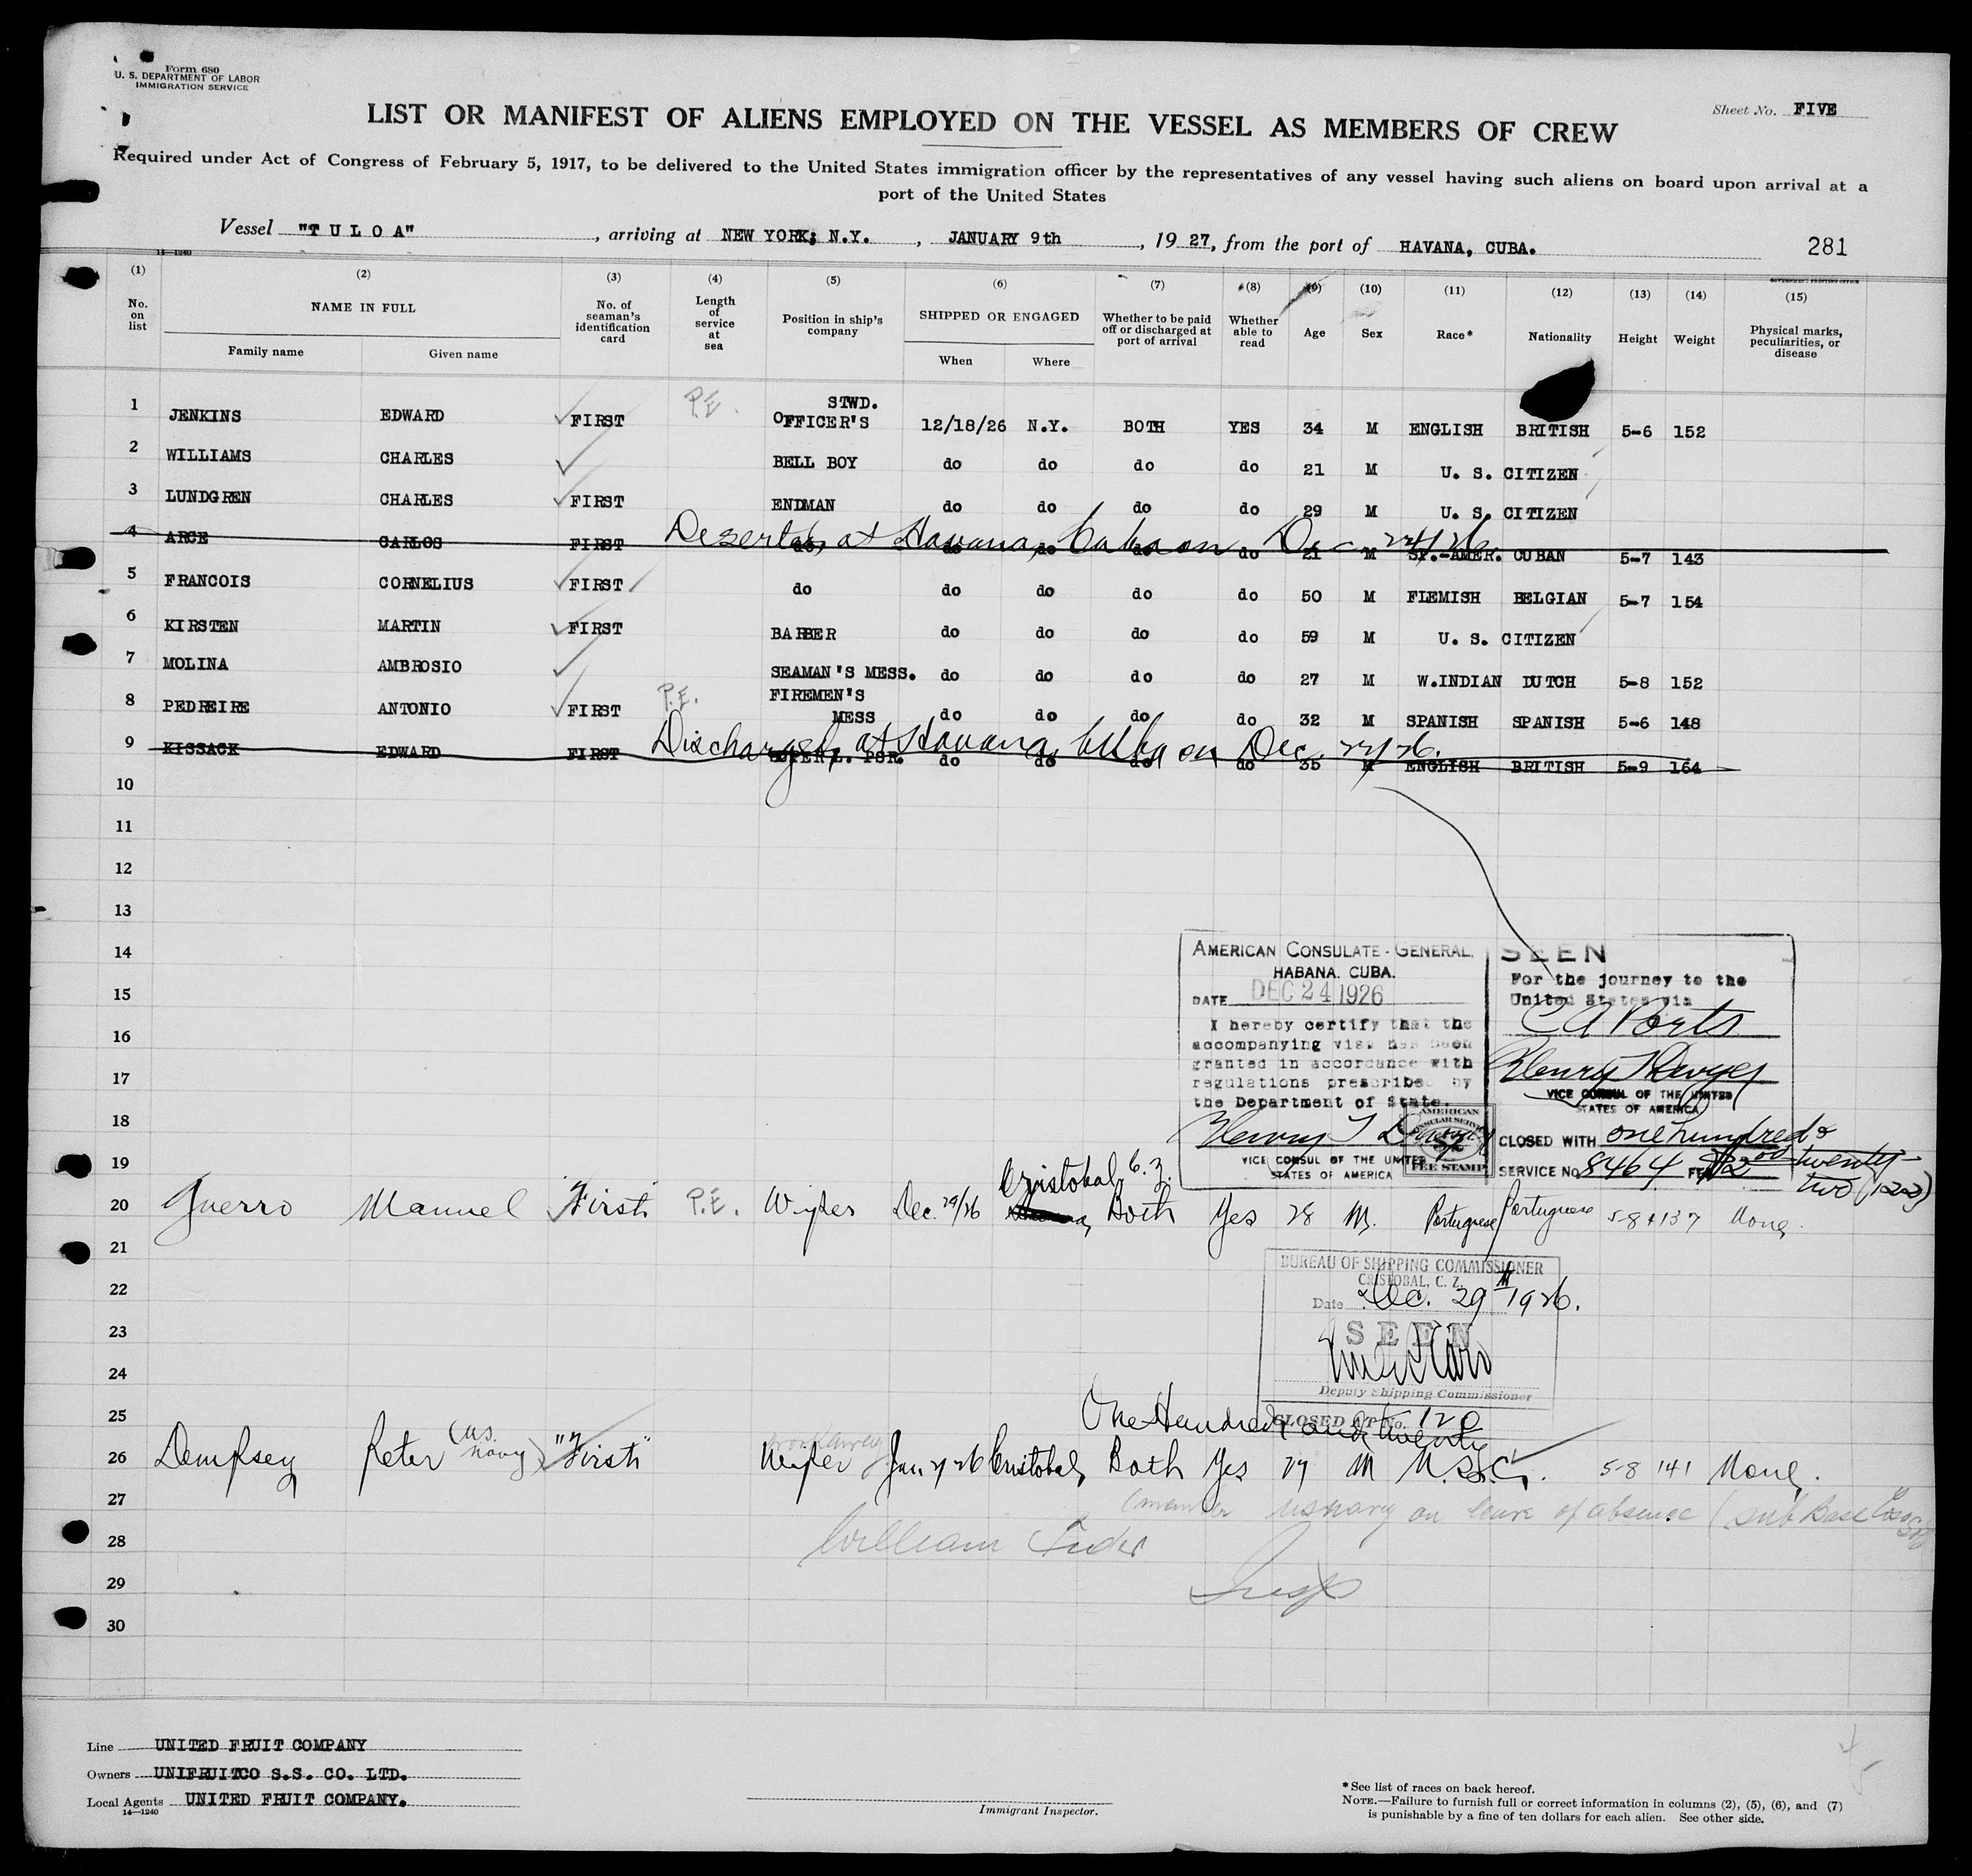 Form 680
U. S. DEPARTMENT OF LABOR
IMMIGRATION SERVICE
Sheet No. FIVE
LIST OR MANIFEST OF ALIENS EMPLOYED ON THE VESSEL AS MEMBERS OF CREW
Required under Act of Congress of February 5, 1917, to be delivered to the United States immigration officer by the representatives of any vessel having such aliens on board upon arrival at a
port of the United States
Vessel "T U L O A", arriving at NEW YORK; N.Y., JANUARY 9th, 19 27, from the port of HAVANA, CUBA. 281
14—1240 GOVERNMENT PRINTING OFFICE
(1) (2) (3) (4) (5) (6) (7) (8) (9) (10) (11) (12) (13) (14) (15)
No. on list NAME IN FULL No. of seaman's identification card Length of service at sea Position in ship's company SHIPPED OR ENGAGED Whether to be paid off or discharged at port of arrival Whether able to read Age Sex Race* Nationality Height Weight Physical marks, peculiarities, or disease
Family name Given name When Where
1 JENKINS EDWARD FIRST P.E. STWD. OFFICER'S 12/18/26 N.Y. BOTH YES 34 M ENGLISH BRITISH 5-6 152
2 WILLIAMS CHARLES BELL BOY do do do do 21 M U. S. CITIZEN
3 LUNDGREN CHARLES FIRST ENDMAN do do do do 29 M U. S. CITIZEN
4 ARCE CARLOS FIRST do do do do do 21 M SP.-AMER. CUBAN 5-7 143
Deserted, at Havana, Cuba on Dec 24/26
5 FRANCOIS CORNELIUS FIRST do do do do do 50 M FLEMISH BELGIAN 5-7 154
6 KIRSTEN MARTIN FIRST BARBER do do do do 59 M U. S. CITIZEN
7 MOLINA AMBROSIO SEAMAN'S MESS. do do do do 27 M W.INDIAN DUTCH 5-8 152
8 PEDREIRE ANTONIO FIRST P.E. FIREMEN'S MESS do do do do 32 M SPANISH SPANISH 5-6 148
9 KISSACK EDWARD FIRST do do do do 35 M ENGLISH BRITISH 5-9 164
Discharged, at Havana, Cuba on Dec. 24/26.
10
11
12
13
14
15
16
17
18
19
AMERICAN CONSULATE-GENERAL.
HABANA. CUBA.
DATE DEC 24 1926
I hereby certify that the
accompanying visa has been
granted in accordance with
regulations prescribed by
the Department of State.
Henry T Dwyer
VICE CONSUL OF THE UNITED
STATES OF AMERICA
AMERICAN
CONSULAR SERVICE
FEE STAMP
SEEN
For the journey to the
United States via
C A Ports
Henry T Dwyer
VICE CONSUL OF THE UNITED
STATES OF AMERICA
CLOSED WITH one hundred & twenty-two (122)
SERVICE No. 8464 FEE $2.00
20 Guerro Manuel "First" P.E. Wiper Dec. 29/26 Cristobal C.Z. Both Yes 28 M. Portuguese Portuguese 5-8 137 None,
21
22
23
24
25
BUREAU OF SHIPPING COMMISSIONER
CRISTOBAL, C. Z.
Date Dec. 29th 1926.
SEEN
Deputy Shipping Commissioner
CLOSED AT No. 120
One Hundred and twenty
26 Dempsey Peter (U.S. Navy) "First" Wiper Jan 2/26 Cristobal, Both Yes 27 M U.S.C. 5-8 141 None.
27 (member US Navy on leave of absence (Sub Base Coco Solo
28 William
29
30
Line UNITED FRUIT COMPANY
Owners UNIFRUITCO S.S. CO. LTD.
Local Agents UNITED FRUIT COMPANY.
14—1240
Immigrant Inspector.
*See list of races on back hereof.
NOTE.—Failure to furnish full or correct information in columns (2), (5), (6), and (7)
is punishable by a fine of ten dollars for each alien. See other side.